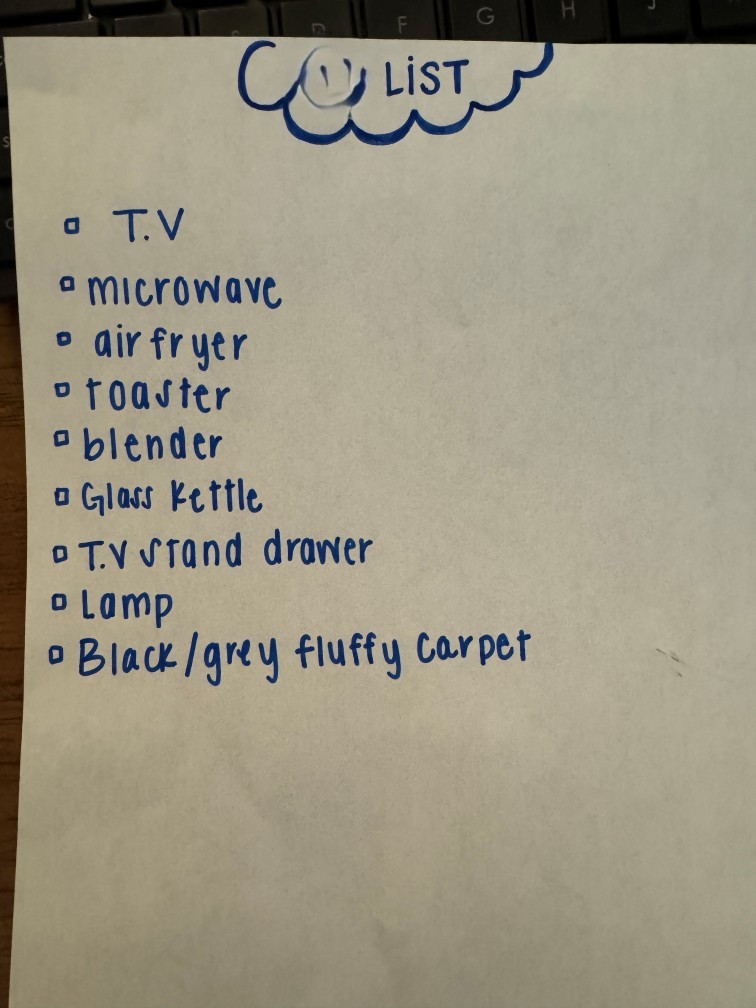 LiST
T.V
microwave
air fryer
toaster
blender
Glass Kettle
T.V stand drawer
Lamp
Black/grey fluffy carpet
D F G H J